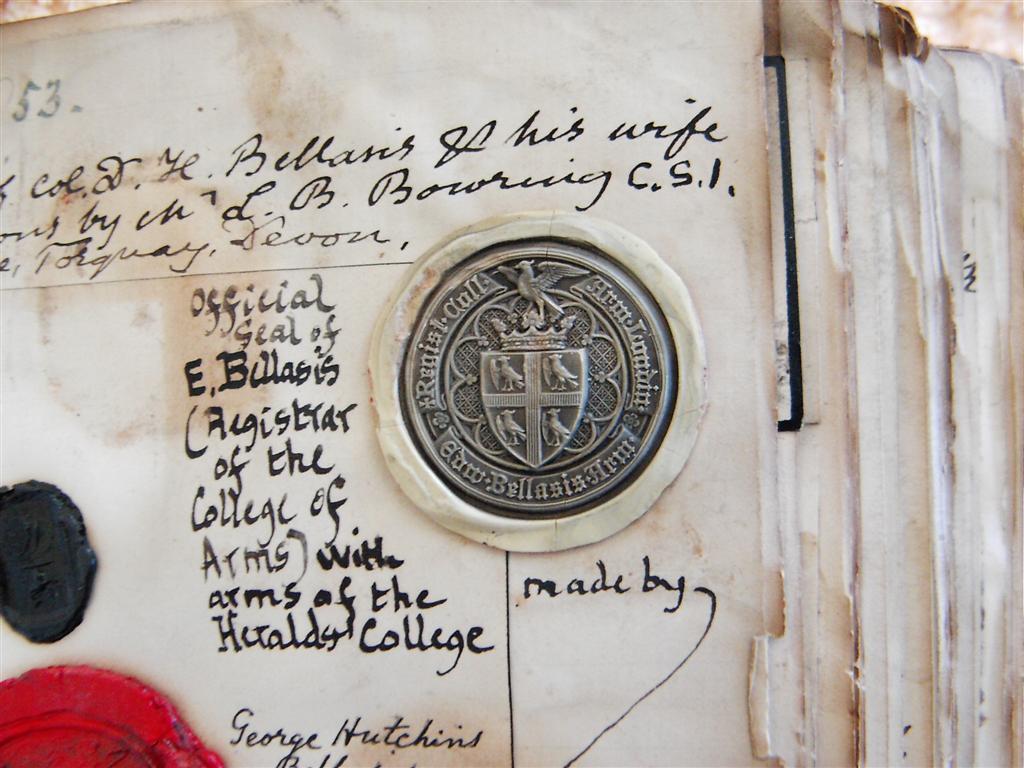 53.
col. D. H. Bellasis & his wife
by Mr L. B. Bowring C.S.I.
Torquay, Devon.
Official
Seal of
E. Bellasis
(Registrar
of the
College of
Arms) with
arms of the
Heralds' College
Regist. Coll.
Edw. Bellasis Arm
made by
George Hutchins